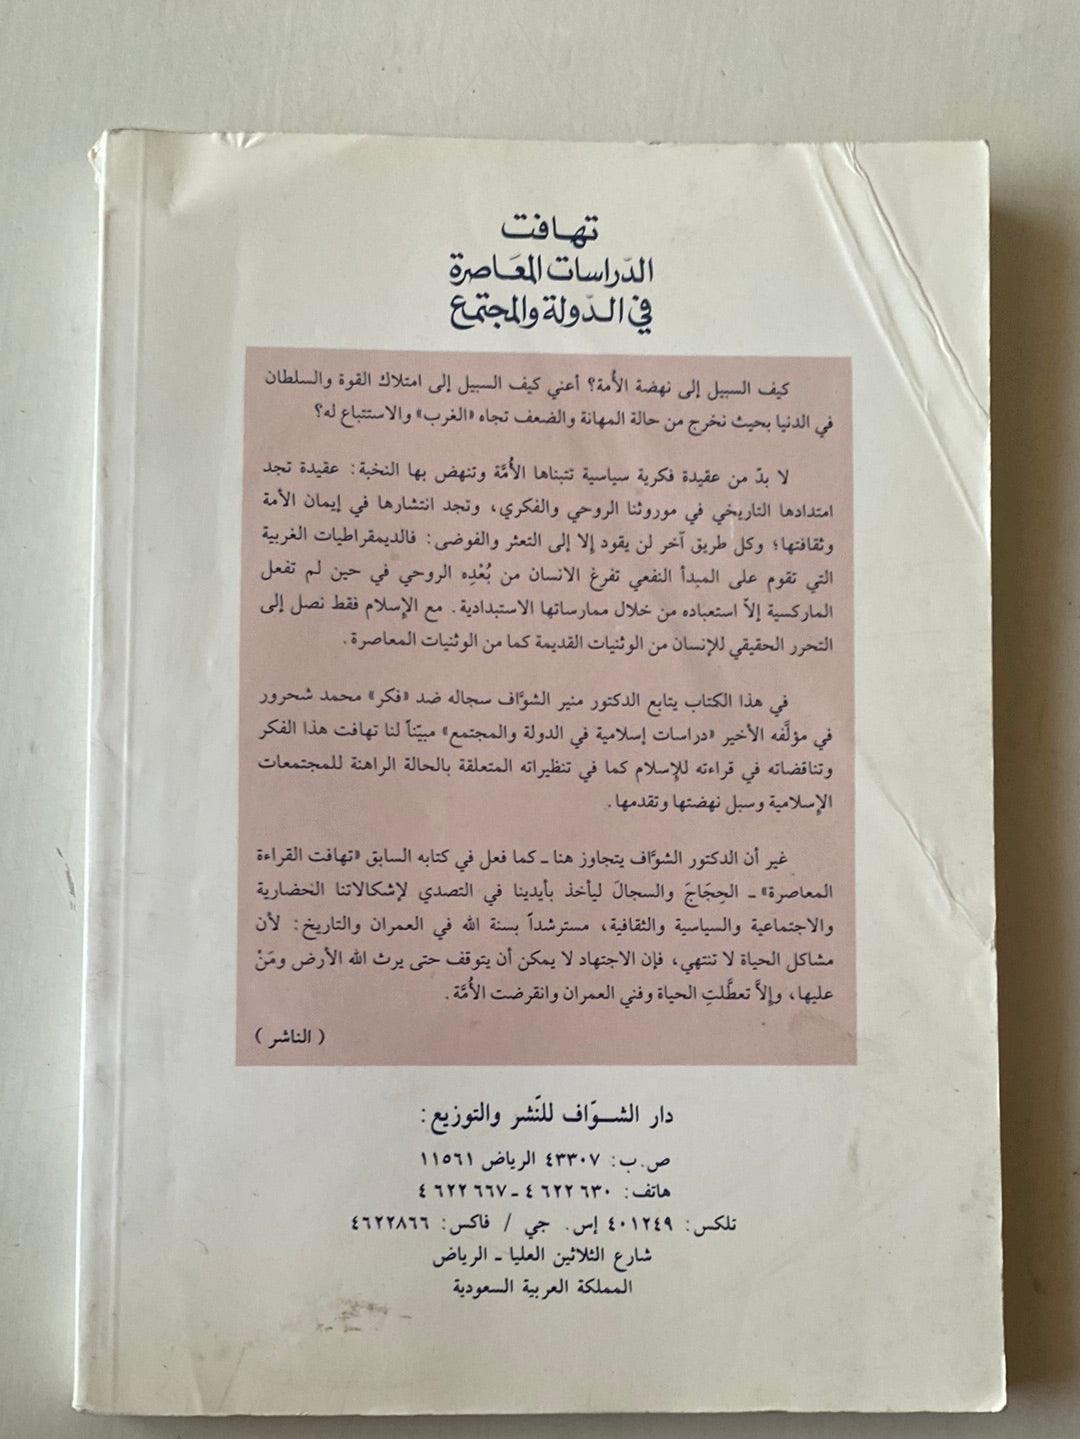 تهافت
الدّراسات المعَاصرة
في الدّولة والمجتمع
كيف السبيل إلى نهضة الأُمة؟ أعني كيف السبيل إلى امتلاك القوة والسلطان
في الدنيا بحيث نخرج من حالة المهانة والضعف تجاه «الغرب» والاستتباع له؟
لا بدّ من عقيدة فكرية سياسية تتبناها الأُمَّة وتنهض بها النخبة: عقيدة تجد
امتدادها التاريخي في موروثنا الروحي والفكري، وتجد انتشارها في إيمان الأمة
وثقافتها؛ وكل طريق آخر لن يقود إلا إلى التعثر والفوضى: فالديمقراطيات الغربية
التي تقوم على المبدأ النفعي تفرغ الانسان من بُعْدِه الروحي في حين لم تفعل
الماركسية إلاّ استعباده من خلال ممارساتها الاستبدادية. مع الإسلام فقط نصل إلى
التحرر الحقيقي للإنسان من الوثنيات القديمة كما من الوثنيات المعاصرة.
في هذا الكتاب يتابع الدكتور منير الشوَّاف سجاله ضد «فكر» محمد شحرور
في مؤلَّفه الأخير «دراسات إسلامية في الدولة والمجتمع» مبيّناً لنا تهافت هذا الفكر
وتناقضاته في قراءته للإسلام كما في تنظيراته المتعلقة بالحالة الراهنة للمجتمعات
الإسلامية وسبل نهضتها وتقدمها.
غير أن الدكتور الشوَّاف يتجاوز هنا ـ كما فعل في كتابه السابق «تهافت القراءة
المعاصرة» ـ الحِجَاجَ والسجالَ ليأخذ بأيدينا في التصدي لإشكالاتنا الحضارية
والاجتماعية والسياسية والثقافية، مسترشداً بسنة الله في العمران والتاريخ: لأن
مشاكل الحياة لا تنتهي، فإن الاجتهاد لا يمكن أن يتوقف حتى يرث الله الأرض ومَنْ
عليها، وإلاَّ تعطَّلتِ الحياة وفني العمران وانقرضت الأُمَّة.
( الناشر )
دار الشـوّاف للنّشر والتوزيع:
ص.ب: ٤٣٣٠٧ الرياض ١١٥٦١
هاتف: ٤٦٢٢٦٣٠ ـ ٤٦٢٢٦٦٧
تلكس: ٤٠١٢٤٩ إس. جي / فاكس: ٤٦٢٢٨٦٦
شارع الثلاثين العليا ـ الرياض
المملكة العربية السعودية